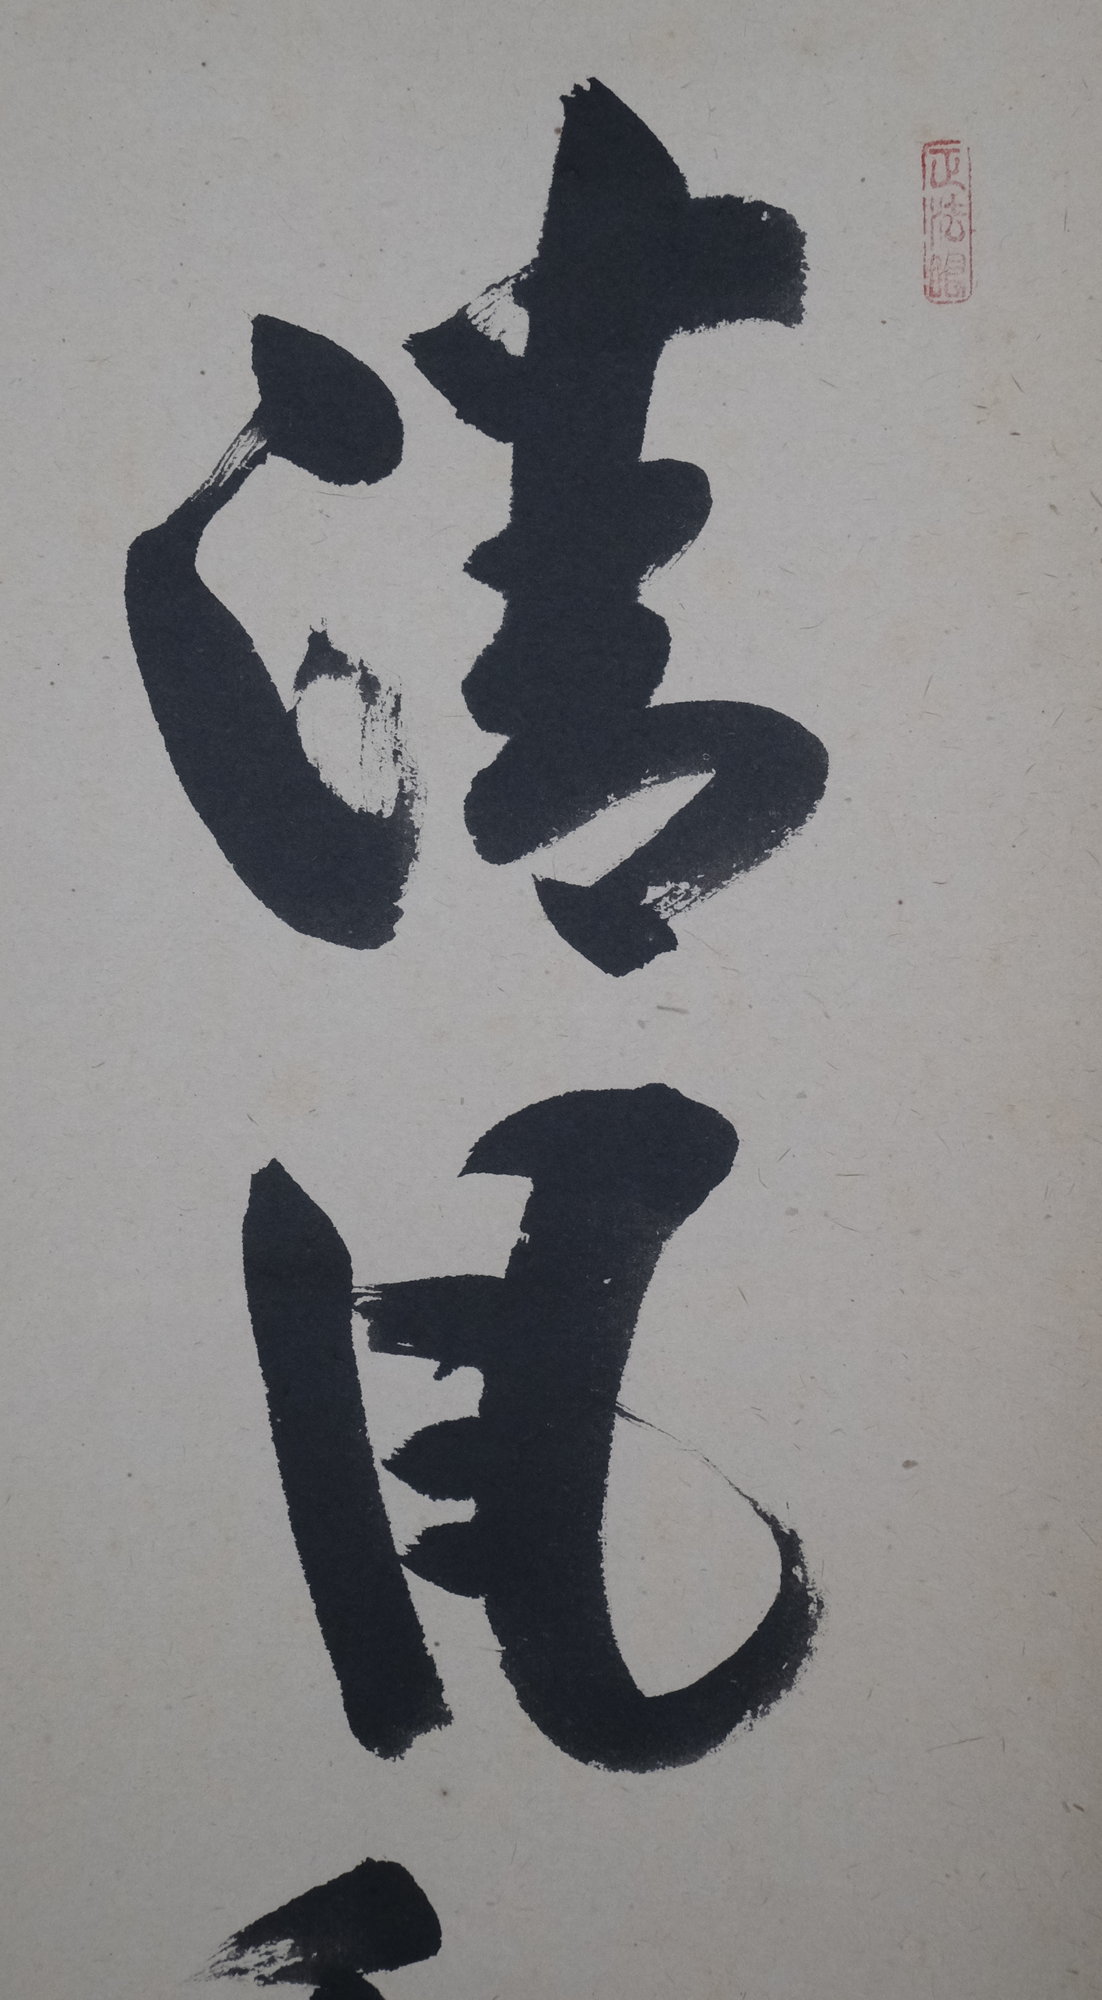 正法眼
清風